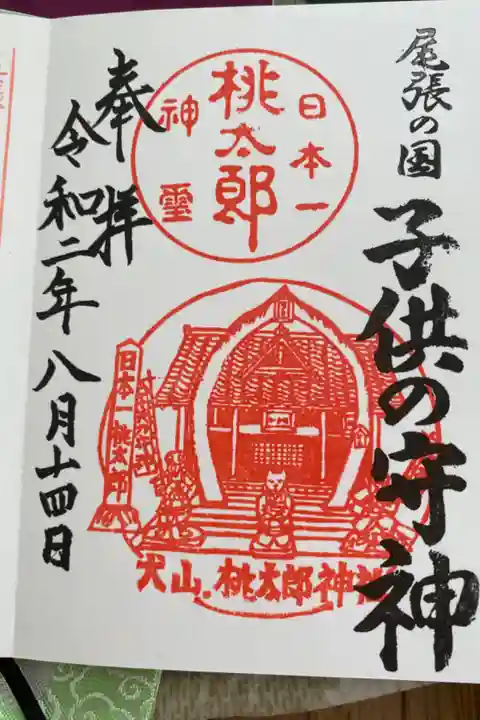 尾張の国
子供の守神
日本一
桃太郎
神霊
日本一桃太郎
犬山.桃太郎神社
奉拝
令和二年八月十四日